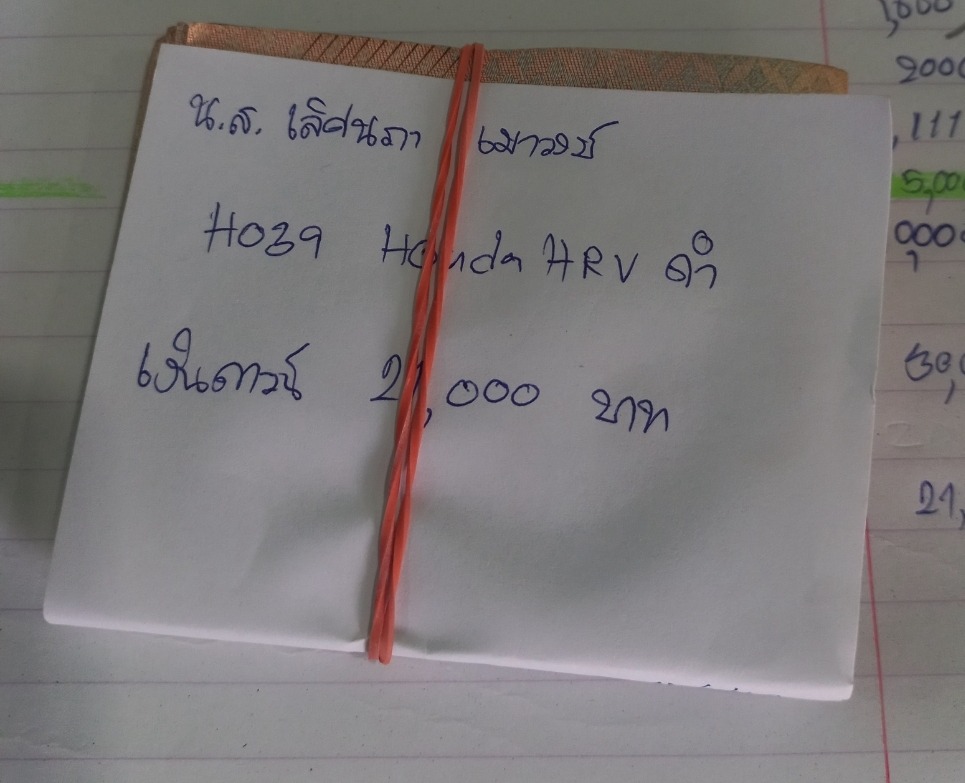 น.ส. เลิศนภา เมาวงษ์
H039 Honda HRV ดำ
เงินดาวน์ 21,000 บาท
2000
,111
5,00
000
30,
21,